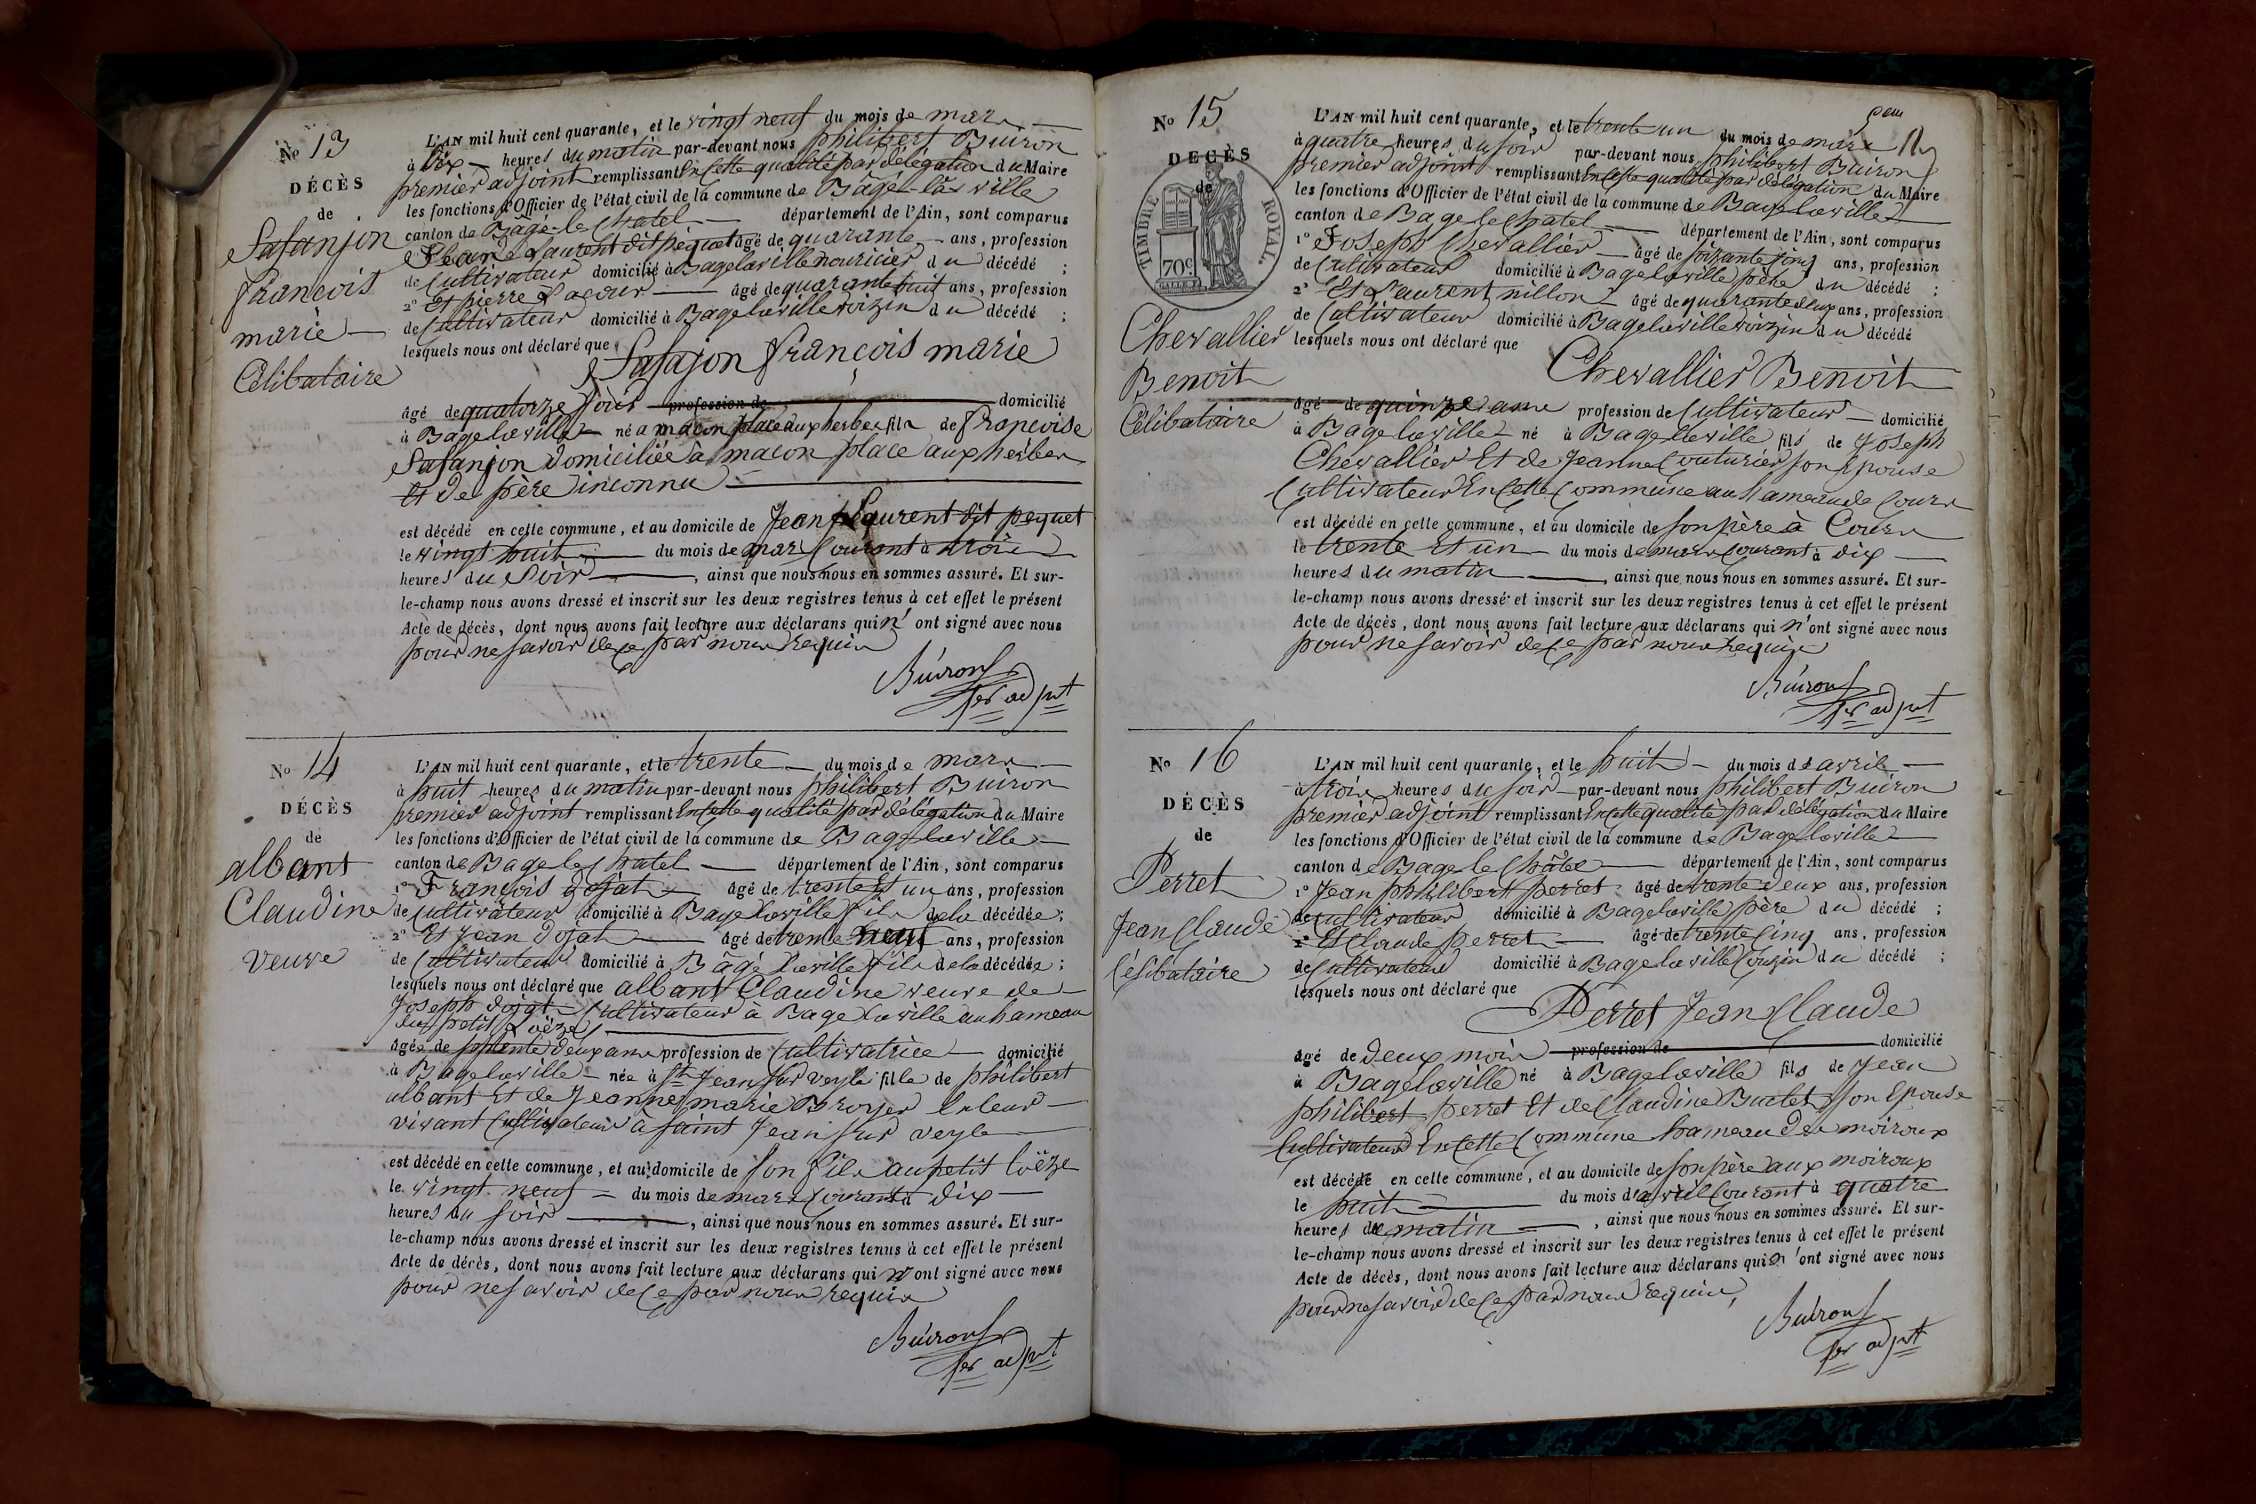 No 13
DÉCÈS
de
Safanjon
françois
marie
Célibataire
L'AN mil huit cent quarante, et le vingt neuf du mois de mars
à dix heures du matin par-devant nous philibert Buiron
premier adjoint remplissant En cette qualité par délégation du Maire
les fonctions d'Officier de l'état civil de la commune de Bâgé-la-ville
canton de Bagé-le-Chatel département de l'Ain, sont comparus
Jean Laurent dit pequet âgé de quarante ans, profession
de Cultivateur domicilié à Bagelaville nouricier du décédé ;
2° Et pierre Lacour âgé de quarante huit ans, profession
de Cultivateur domicilié à Bagelaville voizin du décédé ;
lesquels nous ont déclaré que
Safajon françois marie
âgé de quatorze jours profession de domicilié
à Bagelaville né a macon place aux herbes fils de françoise
Safanjon domiciliée à macon place aux herbes
et de père inconnu
est décédé en cette commune, et au domicile de Jean Laurent dit pequet
le vingt huit du mois de mars Courant à trois
heures du Soir , ainsi que nous nous en sommes assuré. Et sur-
le-champ nous avons dressé et inscrit sur les deux registres tenus à cet effet le présent
Acte de décès, dont nous avons fait lecture aux déclarans qui n'ont signé avec nous
pour ne savoir de ce par nous requis
Buiron
1er adjnt
No 14
DÉCÈS
de
albant
Claudine
veuve
L'AN mil huit cent quarante, et le trente du mois de mars
à huit heures du matin par-devant nous philibert Buiron
premier adjoint remplissant En cette qualité par délégation du Maire
les fonctions d'Officier de l'état civil de la commune de Bagelaville
canton de Bage le Chatel département de l'Ain, sont comparus
1° François dojat âgé de trente Et un ans, profession
de Cultivateur domicilié à Bagelaville fils de la décédée ;
2° Et Jean dojat âgé de trente neuf ans, profession
de Cultivateur domicilié à Bâgé laville fils de la décédée ;
lesquels nous ont déclaré que albant Claudine veuve de
Joseph dojat Cultivateur a Bage laville au hameau
du petit Loëze
âgée de septente deux ans profession de Cultivatrice domicilié
à Bagelaville née à St Jean sur veyle fille de philibert
albant Et de Jeanne marie Broyer En leur
vivant Cultivateur à saint Jean sur veyle
est décédé en cette commune, et au domicile de son fils au petit loëze
le vingt neuf du mois de mars Courant à dix
heures du soir , ainsi que nous nous en sommes assuré. Et sur-
le-champ nous avons dressé et inscrit sur les deux registres tenus à cet effet le présent
Acte de décès, dont nous avons fait lecture aux déclarans qui n'ont signé avec nous
pour ne savoir de ce par nous requis
Buiron
1er adjnt
No 15
DÉCÈS
de
TIMBRE ROYAL.
70c
Chevallier
Benoit
Célibataire
L'AN mil huit cent quarante, et le trente un du mois de mars
à quatre heures du soir par-devant nous philibert Buiron
premier adjoint remplissant En cette qualité par délégation du Maire
les fonctions d'Officier de l'état civil de la commune de Bagelaville
canton de Bage le Chatel département de l'Ain, sont comparus
1° Joseph Chevallier âgé de soixante cinq ans, profession
de Cultivateur domicilié à Bagelaville père du décédé ;
2° Et Laurent nillon âgé de quarante deux ans, profession
de Cultivateur domicilié à Bagelaville voizin du décédé
lesquels nous ont déclaré que
Chevallier Benoit
âgé de quinze ans profession de Cultivateur domicilié
à Bagelaville né à Bagelaville fils de Joseph
Chevallier Et de Jeanne Couturier son Epouse
Cultivateur En Cette Commune au hameau de Cours
est décédé en cette commune, et au domicile de son père à Cours
le trente Et un du mois de mars Courant à dix
heures du matin , ainsi que nous nous en sommes assuré. Et sur-
le-champ nous avons dressé et inscrit sur les deux registres tenus à cet effet le présent
Acte de décès, dont nous avons fait lecture aux déclarans qui n'ont signé avec nous
pour ne savoir de ce par nous requis
Buiron
1er adjnt
No 16
DÉCÈS
de
Perret
Jean Claude
Célibataire
L'AN mil huit cent quarante, et le huit du mois d'avril
à trois heures du soir par-devant nous philibert Buiron
premier adjoint remplissant En cette qualité par délégation du Maire
les fonctions d'Officier de l'état civil de la commune de Bagelaville
canton de Bage le Châtel département de l'Ain, sont comparus
1° Jean philibert perret âgé de trente deux ans, profession
de Cultivateur domicilié à Bagelaville père du décédé ;
2° Et Claude perret âgé de trente Cinq ans, profession
de Cultivateur domicilié à Bagelaville Couzin du décédé ;
lesquels nous ont déclaré que
Perret Jean Claude
âgé de deux mois profession de domicilié
à Bagelaville né à Bagelaville fils de Jean
philibert perret Et de Claudine Buclet son Epouse
Cultivateur En Cette Commune hameau des moiroux
est décédé en cette commune, et au domicile de son père aux moiroux
le huit du mois d'avril Courant à quatre
heures du matin , ainsi que nous nous en sommes assuré. Et sur-
le-champ nous avons dressé et inscrit sur les deux registres tenus à cet effet le présent
Acte de décès, dont nous avons fait lecture aux déclarans qui n'ont signé avec nous
pour ne savoir de ce par nous requis
Buiron
1er adjnt